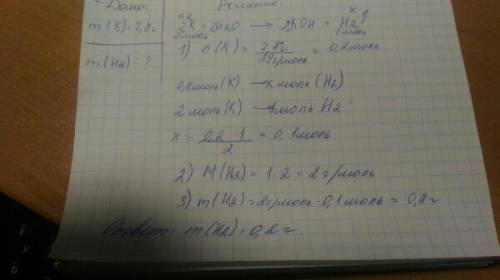 Дано:
m(K)=7,8г
m(H2)-?
Решение
0,2 x
2K+2H2O → 2KOH + H2↑
2моль 1моль
1) n(K) = 7,8г / 39г/моль = 0,2моль
0,2моль(K) → x моль(H2)
2моль(K) → 1моль H2
x = 0,2·1 / 2 = 0,1моль
2) M(H2) = 1·2 = 2г/моль
3) m(H2) = 2г/моль·0,1моль = 0,2г
Ответ: m(H2)=0,2г.